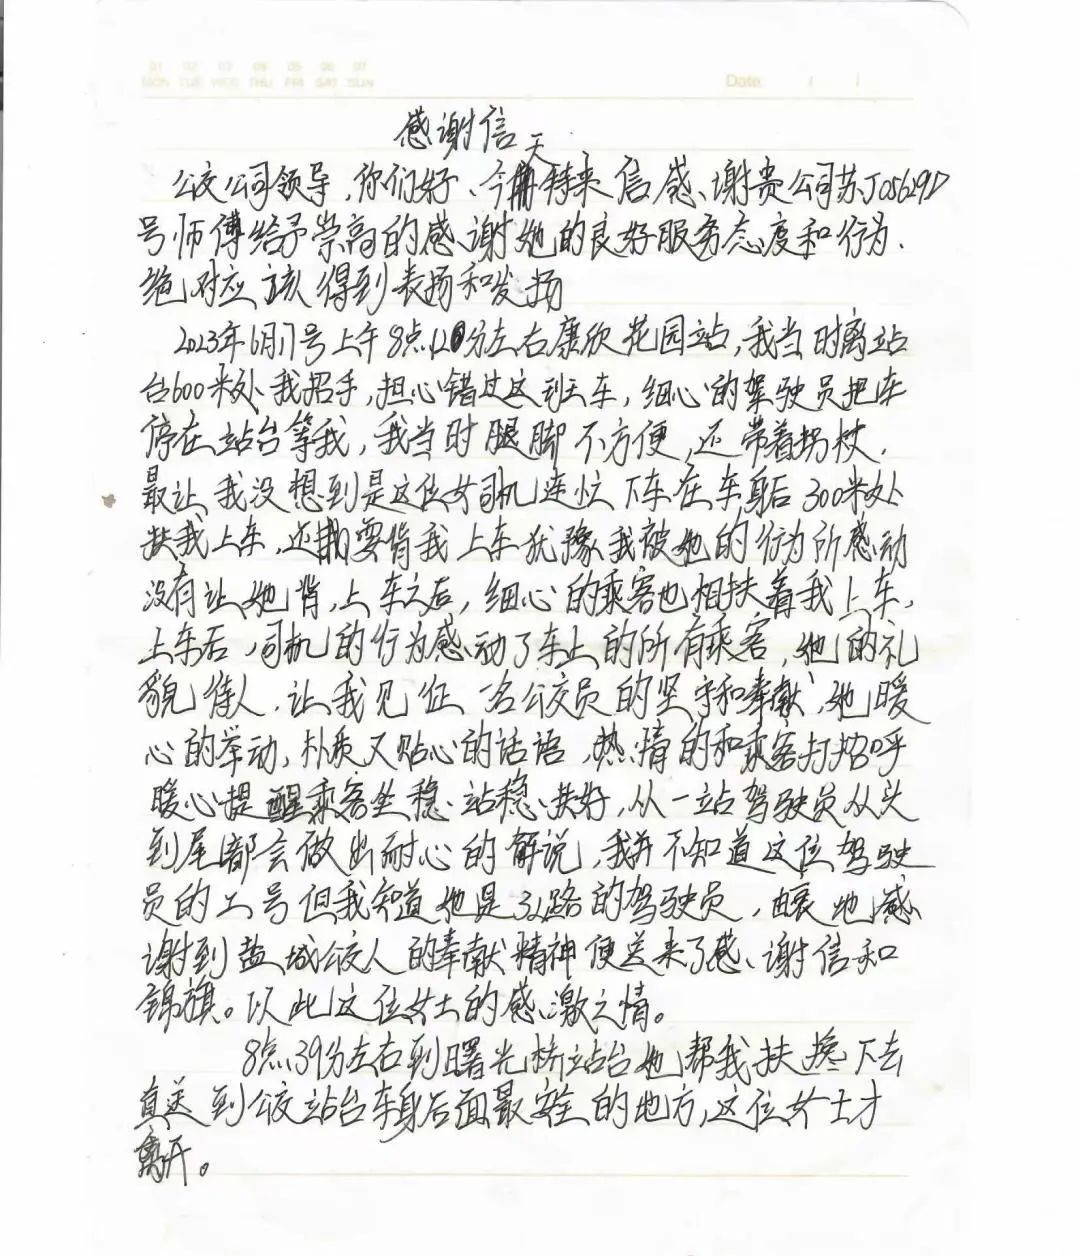 01 02 03 04 05 06 07
MON TUE WED THU FRI SAT SUN
Date / /
感谢信
公交公司领导,你们好、今天特来信感谢贵公司苏J05629D
号师傅给予崇高的感谢她的良好服务态度和行为.
绝对应该得到表扬和发扬
2023年6月17号上午8点12分左右康欣花园站,我当时离站
台600米处我招手,担心错过这班车,细心的驾驶员把车
停在站台等我,我当时腿脚不方便,还带着拐杖.
最让我没想到是这位女司机连忙下车在车身后300米处
扶我上车,还要背我上车犹豫我被她的行为所感动
没有让她背,上车之后,细心的乘客也相扶着我上车,
上车后,司机的行为感动了车上的所有乘客,她的礼
貌待人,让我见证一名公交员的坚守和奉献,她暖
心的举动,朴质又贴心的话语,热情的和乘客打招呼
暖心提醒乘客坐稳、站稳、扶好,从一站驾驶员从头
到尾都会做出耐心的解说,我并不知道这位驾驶
员的工号但我知道她是32路的驾驶员,由衷地感
谢到盐城公交人的奉献精神便送来了感谢信和
锦旗。以此这位女士的感激之情。
8点39分左右到曙光桥站台她帮我扶搀下去
直送到公交站台车身后面最安全的地方,这位女士才
离开。